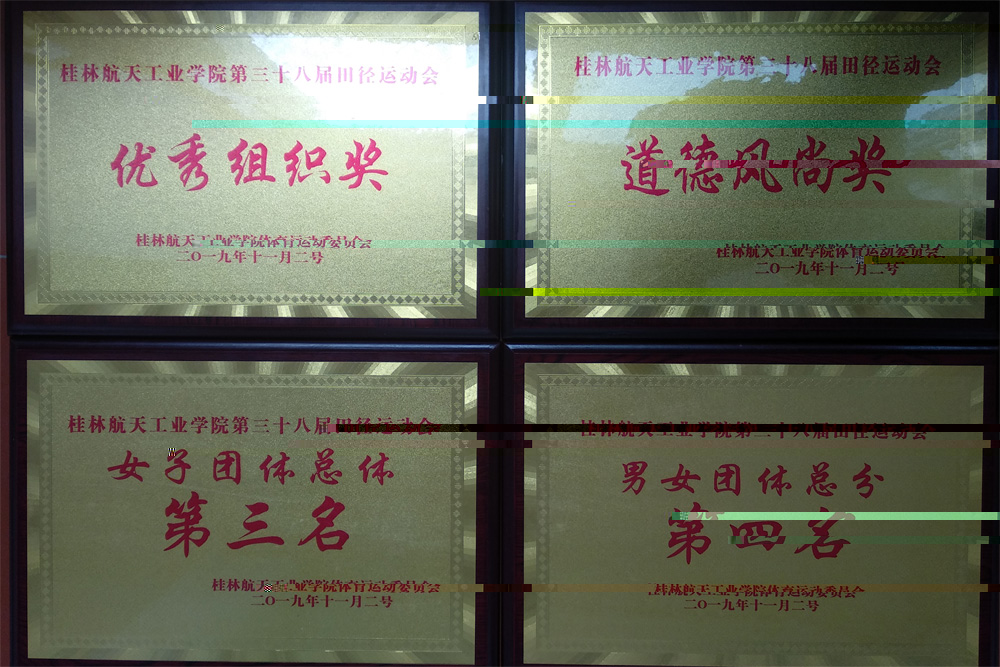 桂林航天工业学院第三十八届田径运动会
优秀组织奖
桂林航天工业学院体育运动委员会
二〇一九年十一月二号
桂林航天工业学院第三十八届田径运动会
道德风尚奖
桂林航天工业学院体育运动委员会
二〇一九年十一月二号
桂林航天工业学院第三十八届田径运动会
女子团体总体
第三名
桂林航天工业学院体育运动委员会
二〇一九年十一月二号
桂林航天工业学院第三十八届田径运动会
男女团体总分
第四名
桂林航天工业学院体育运动委员会
二〇一九年十一月二号